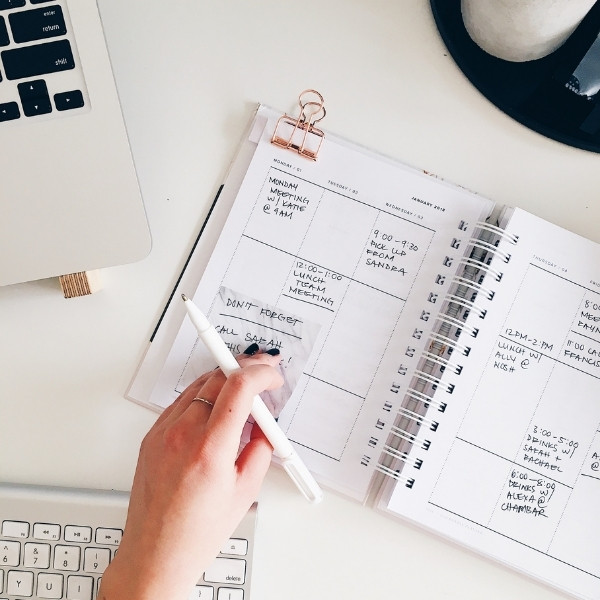 MONDAY / 01
TUESDAY / 02
WEDNESDAY / 03
JANUARY 2018
MONDAY
MEETING
W/ KATIE
@ 9AM
12:00-1:00
LUNCH
TEAM
MEETING
9:00-9:30
PICK UP
FROM
SANDRA
DON'T FORGET
CALL SARAH
THIS
!
THURSDAY / 04
12PM-2PM
LUNCH W/
ALLY @
NOSH
3:00-5:00
DRINKS W/
SARAH +
RACHAEL
6:00-8:00
DRINKS W/
ALEXA @
CHAMBAR
8:0
MEET
11:00 CA
FRANCIS
enter
return
shift
delete
6
7
8
9
Y
U
I